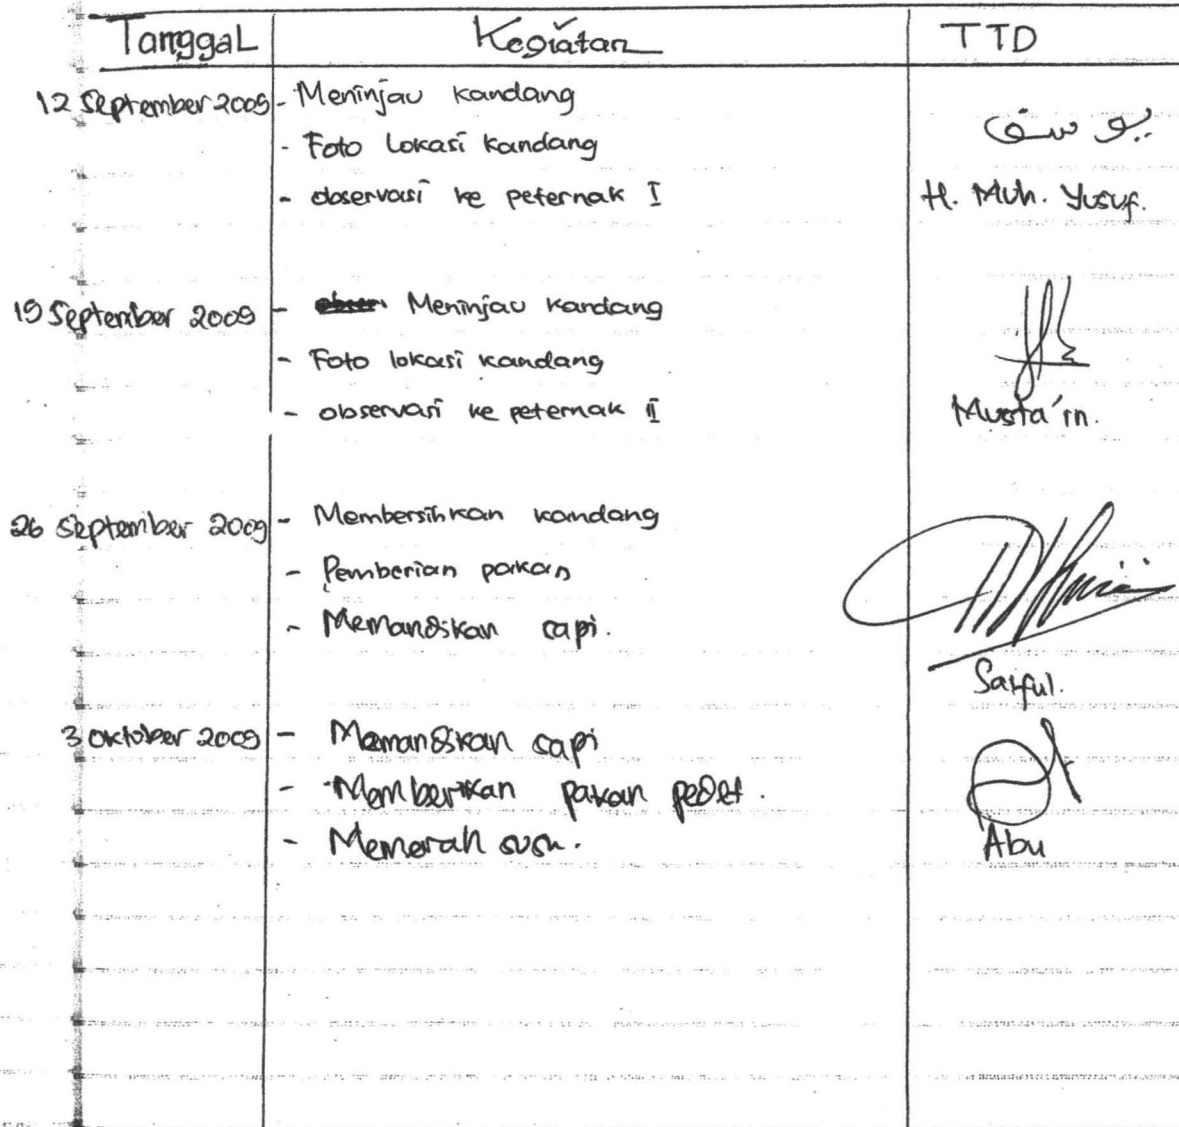 Tanggal Kegiatan TTD
12 September 2009 - Meninjau kandang
يوسف
- Foto Lokasi Kandang
- observasi ke peternak I H. Muh. Yusuf.
19 September 2009 - Meninjau kandang
- Foto lokasi kandang
- observasi ke peternak II Musta'in.
26 September 2009 - Membersihkan kandang
- Pemberian pakan
- Memandikan sapi.
Saiful.
3 Oktober 2009 - Memandikan sapi
- Memberikan pakan pedet.
- Memerah susu. Abu